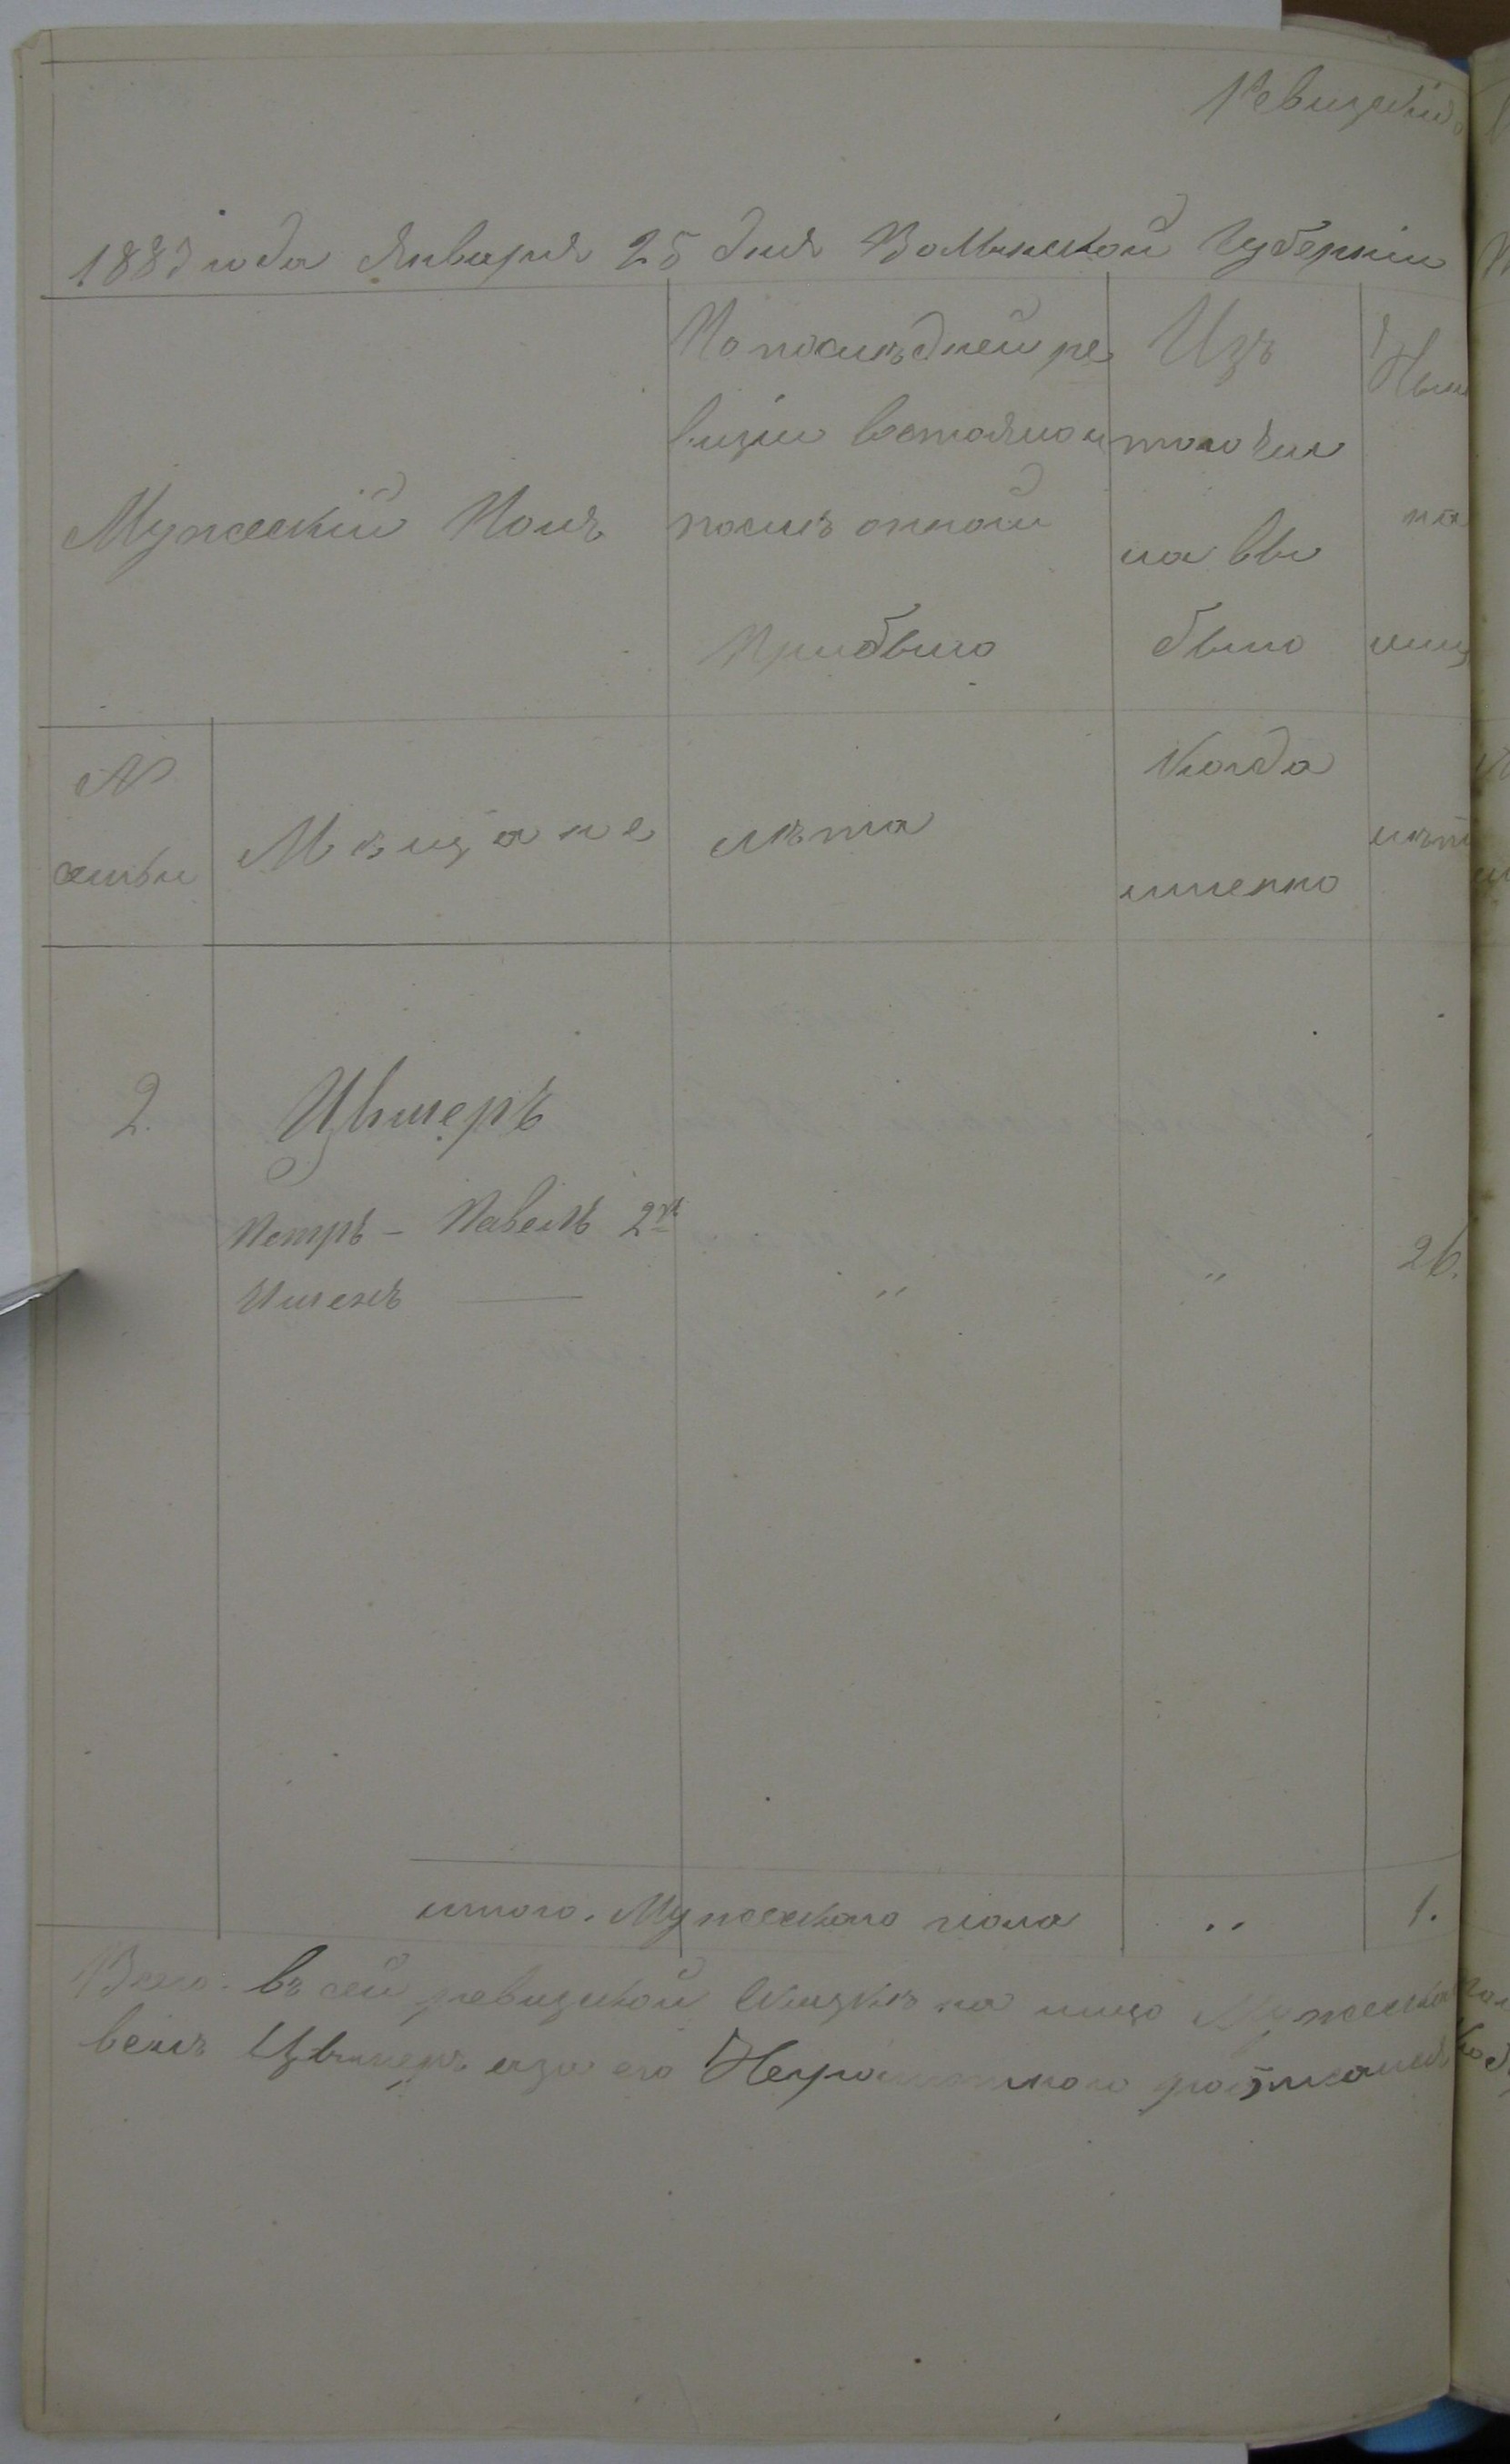 Ревизская
1883 года Января 25 дня Волынской Губернии
Мужеский Полъ
По послѣдней ре
визіи состояло и
послѣ оной
прибыло
Изъ
того чис
ла вы
было
Ны
на
лиц
№
семьи
Мѣщане
лѣта
Когда
именно
лѣт
2.
Цвинеръ
Петръ - Павелъ 2хъ
Именъ
"
"
26.
итого. Мужескаго пола
"
1.
Всего. въ сей ревизской сказкѣ на лицо Мужеска
велъ Цвинеръ аза его